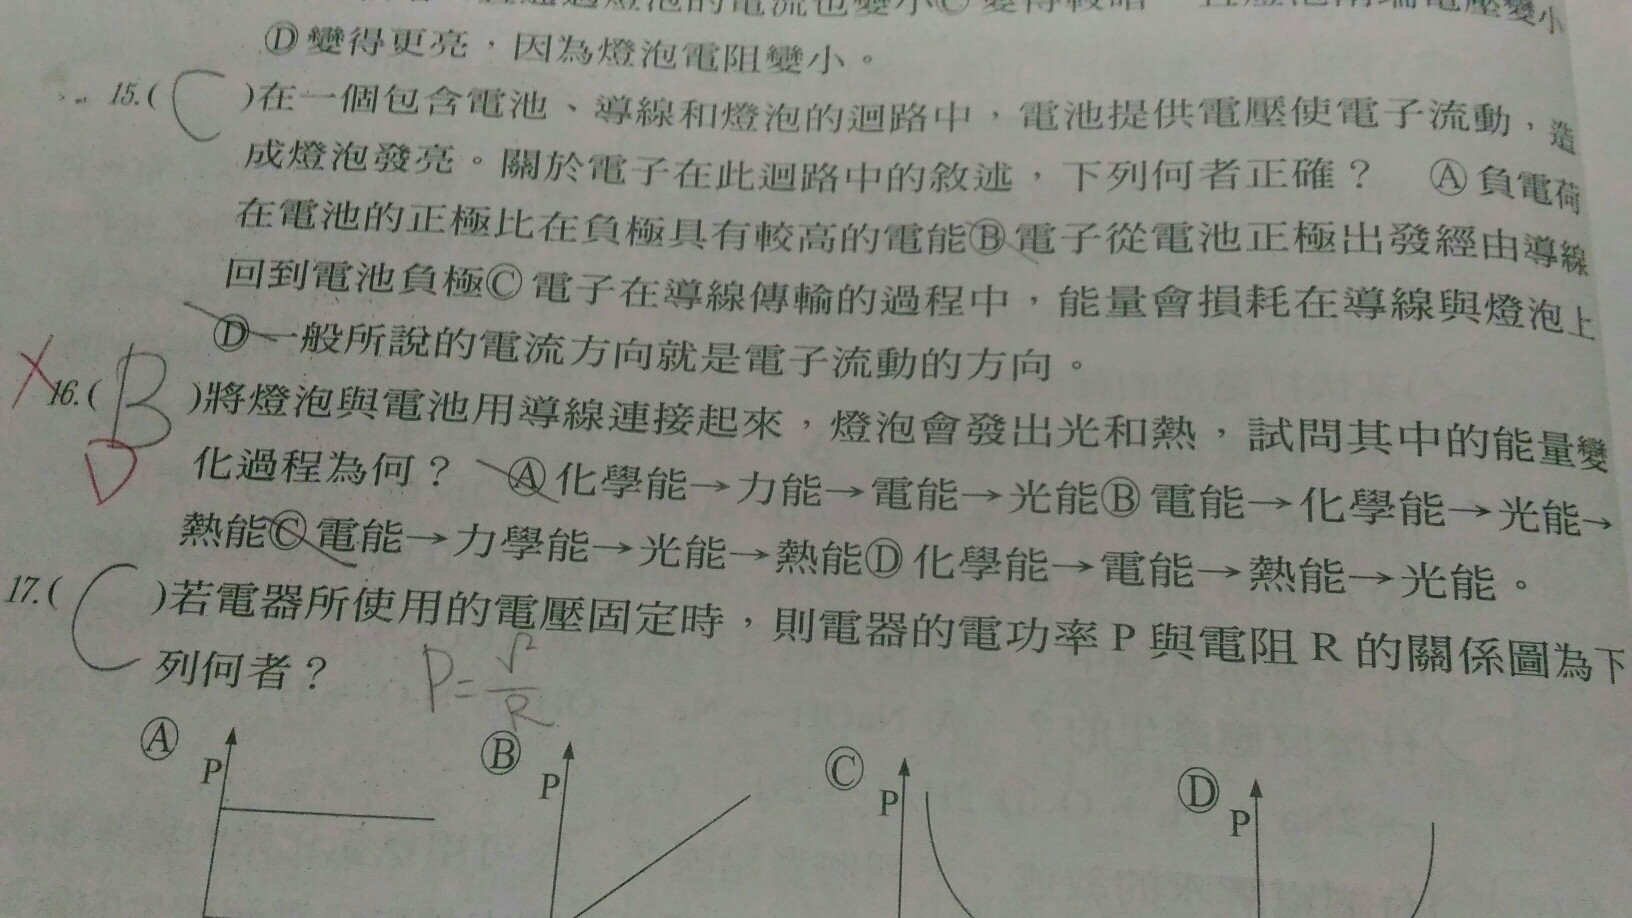 的電流也變小Ⓒ變得較暗
Ⓓ變得更亮，因為燈泡電阻變小。
15.( C )在一個包含電池、導線和燈泡的迴路中，電池提供電壓使電子流動，造
成燈泡發亮。關於電子在此迴路中的敘述，下列何者正確？ Ⓐ負電荷
在電池的正極比在負極具有較高的電能Ⓑ電子從電池正極出發經由導線
回到電池負極Ⓒ電子在導線傳輸的過程中，能量會損耗在導線與燈泡上
Ⓓ一般所說的電流方向就是電子流動的方向。
16.( B )將燈泡與電池用導線連接起來，燈泡會發出光和熱，試問其中的能量變
D
化過程為何？ Ⓐ化學能→力能→電能→光能Ⓑ電能→化學能→光能→
熱能Ⓒ電能→力學能→光能→熱能Ⓓ化學能→電能→熱能→光能。
17.( C )若電器所使用的電壓固定時，則電器的電功率 P 與電阻 R 的關係圖為下
列何者？ P=V²/R
Ⓐ P Ⓑ P Ⓒ P Ⓓ P